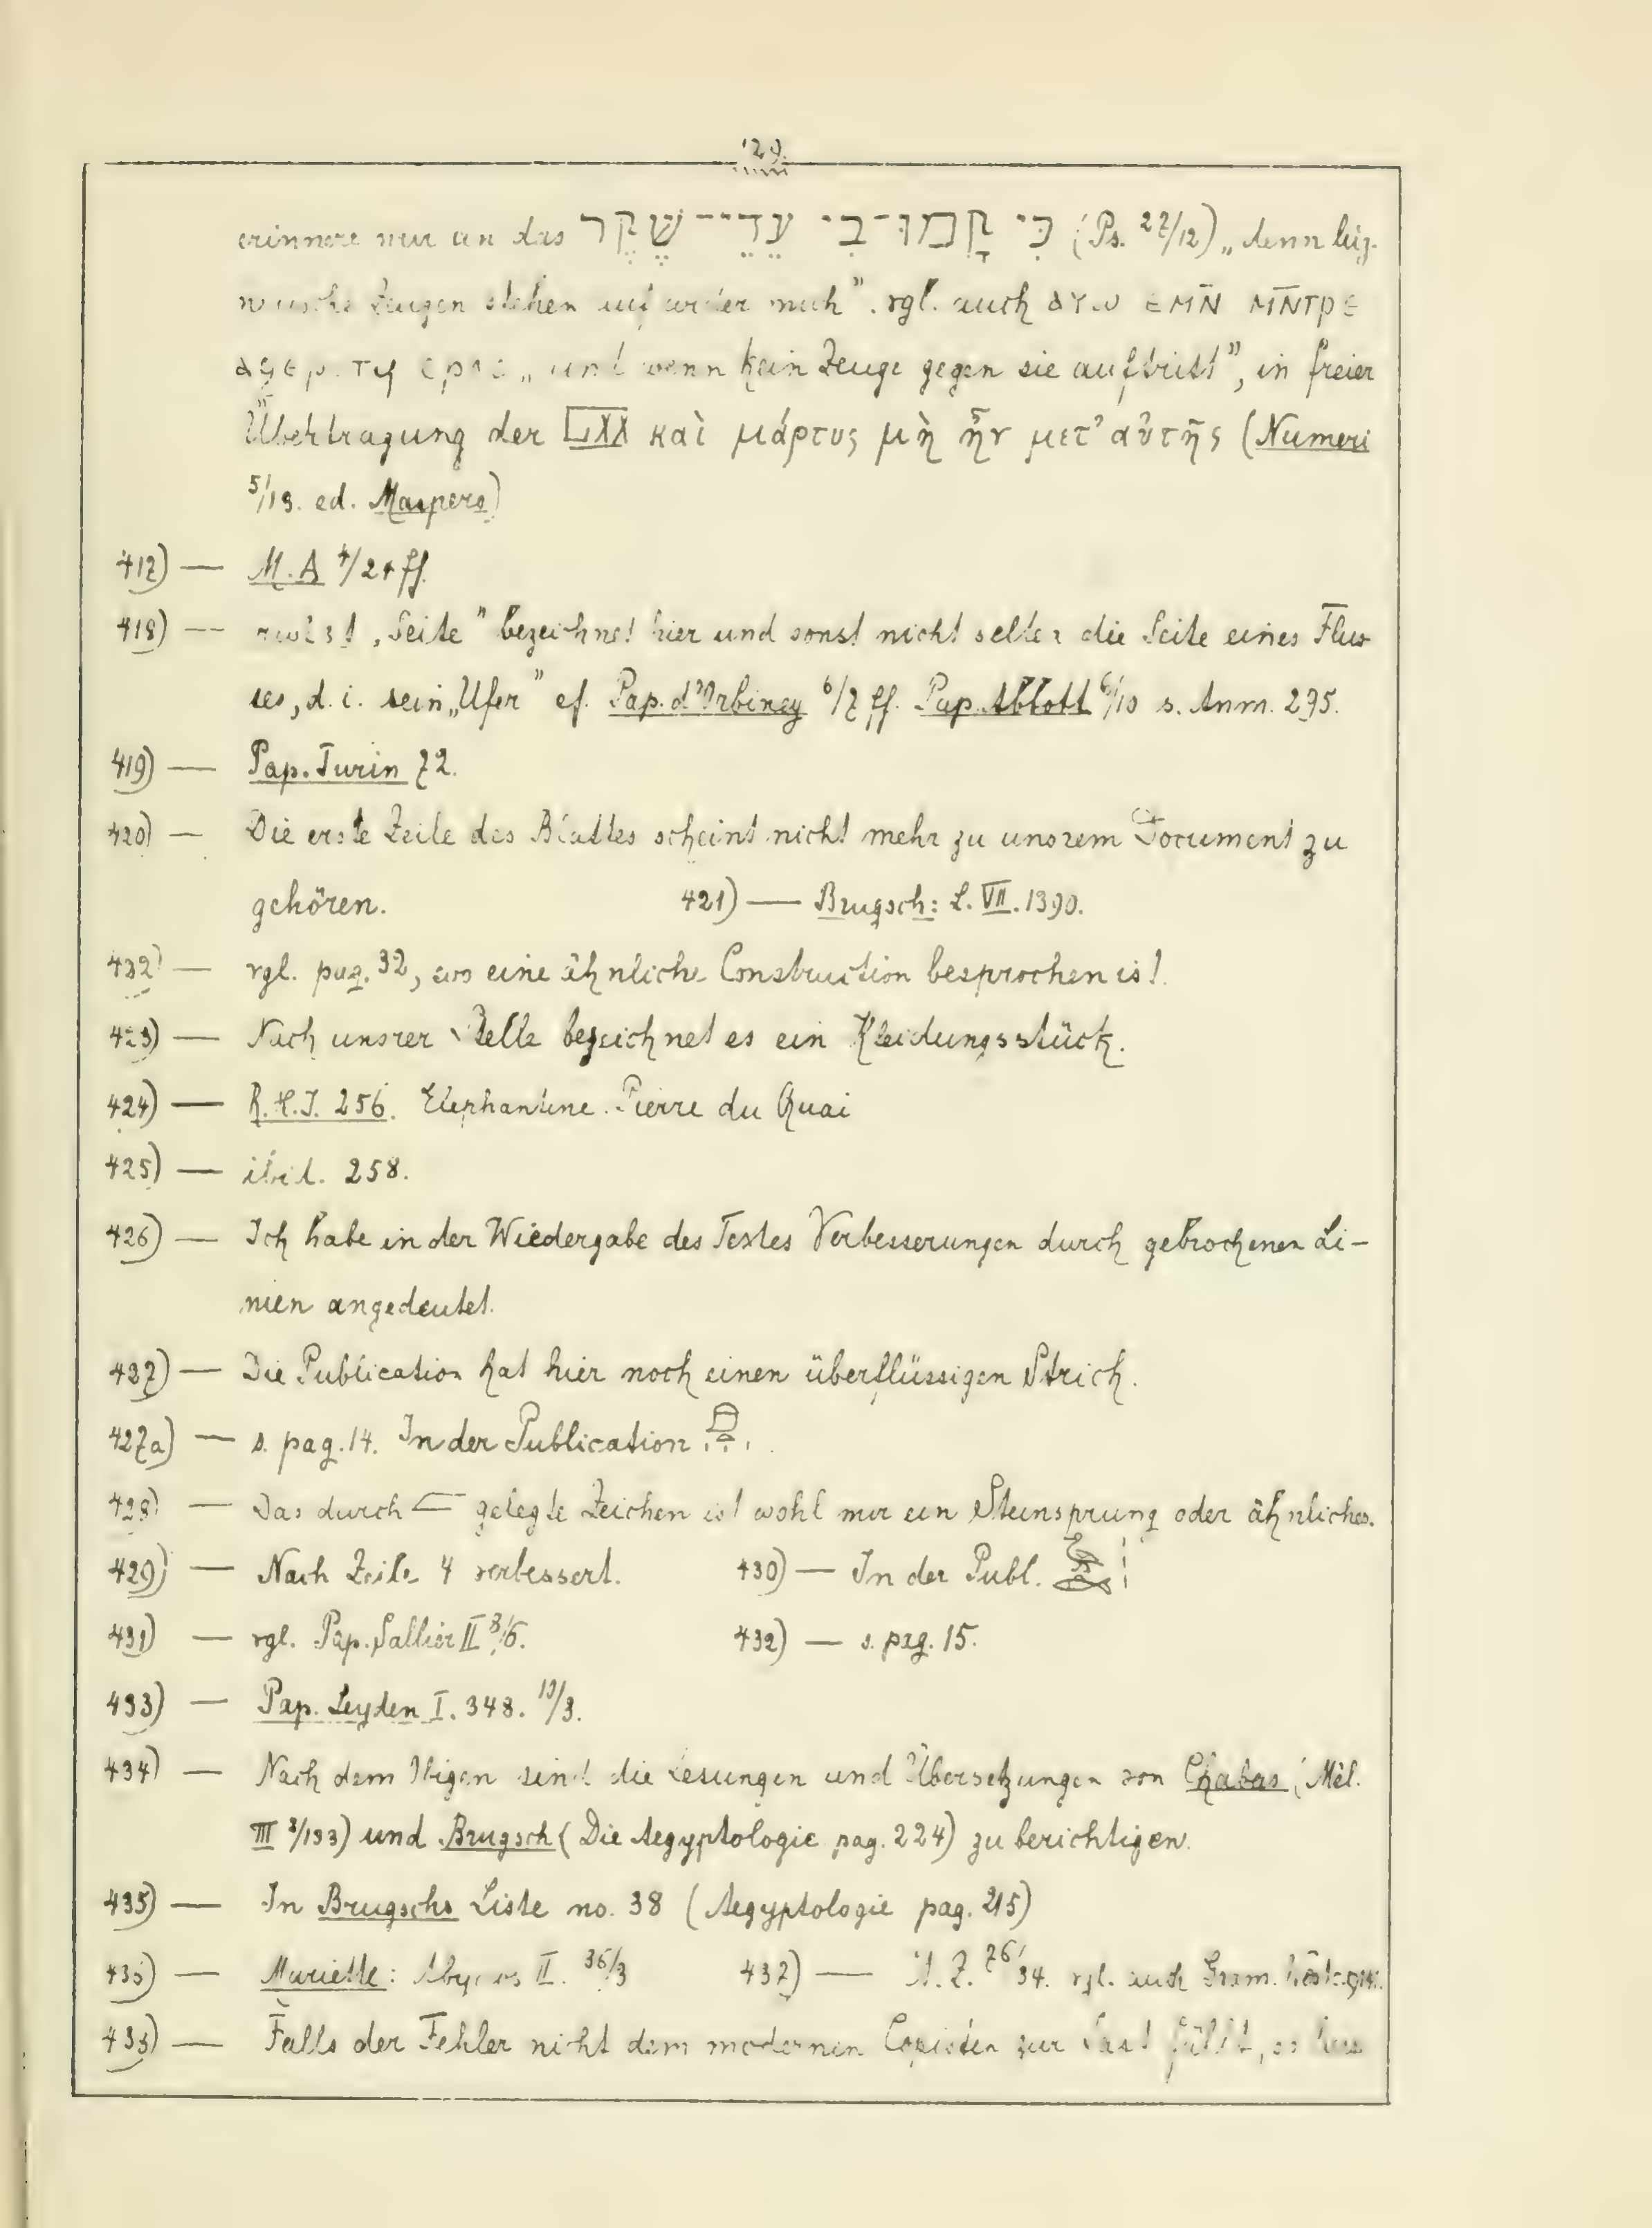 129.
erinnere nur an das כִּי קָמוּ־בִי עֵדֵי־שֶׁקֶר (Ps. 27/12) „denn lüg-
nerische Zeugen stehen auf wider mich". vgl. auch ⲁⲩⲱ ⲉⲙⲛ̄ ⲙⲛ̄ⲧⲣⲉ
„und wenn kein Zeuge gegen sie auftritt", in freier
Übertragung der LXX καὶ μάρτυς μὴ ἦν μετ' αὐτῆς (Numeri
5/13. ed. Maspero)
417) — M. A 4/24 ff.
418) — „Seite" bezeichnet hier und sonst nicht selten die Seite eines Flus-
ses, d. i. sein „Ufer" cf. Pap. d'Orbiney 6/7 ff. Pap. Abbott 6/10 s. Anm. 295.
419) — Pap. Turin 72.
420) — Die erste Zeile des Blattes scheint nicht mehr zu unsrem Document zu
gehören. 421) — Brugsch: L. VII. 1390.
422) — vgl. pag. 32, wo eine ähnliche Construction besprochen ist.
423) — Nach unsrer Stelle bezeichnet es ein Kleidungsstück.
424) — R. H. J. 256. Elephantine. Pierre du Quai
425) — ibid. 258.
426) — Ich habe in der Wiedergabe des Textes Verbesserungen durch gebrochenen Li-
nien angedeutet.
427) — Die Publication hat hier noch einen überflüssigen Strich.
427a) — s. pag. 14. In der Publication
428) — Das durch gelegte Zeichen ist wohl nur ein Steinsprung oder ähnliches.
429) — Nach Zeile 4 verbessert. 430) — In der Publ.
431) — vgl. Pap. Sallier II 8/6. 432) — s. pag. 15.
433) — Pap. Leyden I. 348. 10/3.
434) — Nach dem Obigen sind die Lesungen und Übersetzungen von Chabas (Mél.
III 2/133) und Brugsch (Die Aegyptologie pag. 224) zu berichtigen.
435) — In Brugschs Liste no. 38 (Aegyptologie pag. 215)
436) — Mariette: Abydos II. 36/3 437) — Ä. Z. 76/34. vgl. auch Gram. hiérogl.
438) — Falls der Fehler nicht dem modernen Copisten zur Last fällt, so